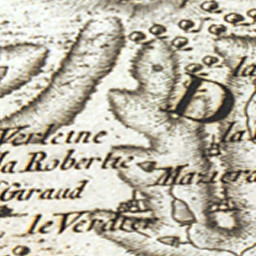 la
D
Verleine
la
la Robertie
Maziera
Giraud
le Verdier